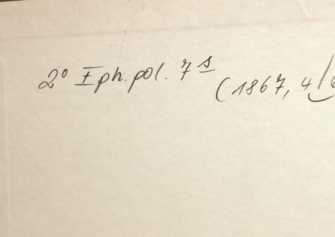 2° Eph. pol. 7 s
(1867, 4